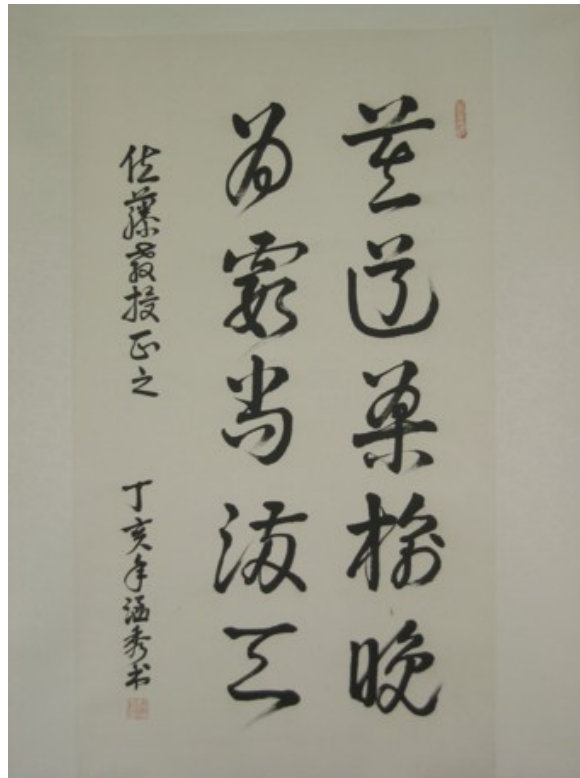 莫道桑榆晚
为霞尚满天
佐藤教授正之
丁亥年涵秀书